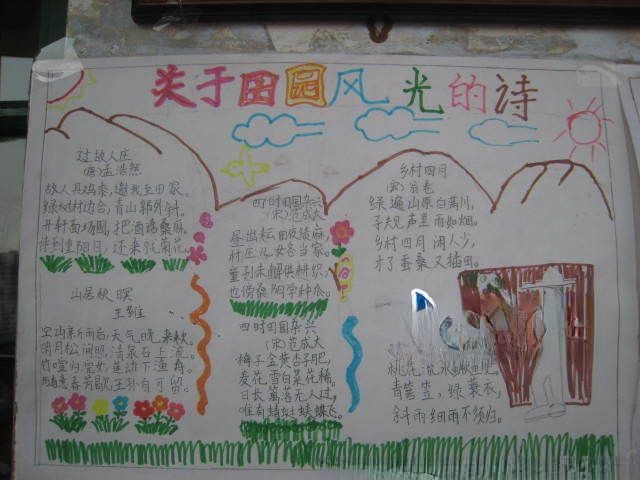 关于田园风光的诗
过故人庄
(唐)孟浩然
故人具鸡黍,邀我至田家。
绿树村边合,青山郭外斜。
开轩面场圃,把酒话桑麻。
待到重阳日,还来就菊花。
山居秋暝
王维
空山新雨后,天气晚来秋。
明月松间照,清泉石上流。
竹喧归浣女,莲动下渔舟。
随意春芳歇,王孙自可留。
四时田园杂兴
(宋)范成大
昼出耘田夜绩麻,
村庄儿女各当家。
童孙未解供耕织,
也傍桑阴学种瓜。
四时田园杂兴
(宋)范成大
梅子金黄杏子肥,
麦花雪白菜花稀。
日长篱落无人过,
唯有蜻蜓蛱蝶飞。
乡村四月
(宋)翁卷
绿遍山原白满川,
子规声里雨如烟。
乡村四月闲人少,
才了蚕桑又插田。
桃花流水鳜鱼肥。
青箬笠,绿蓑衣,
斜风细雨不须归。